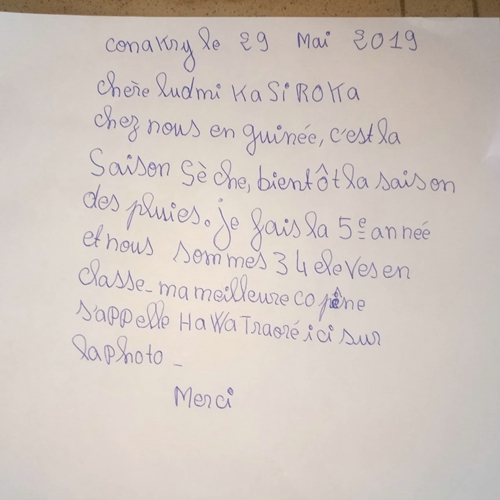 conakry le 29 Mai 2019
chère ludmi KaSiROKa
chez nous en guinée, c'est la
Saison Sèche, bientôt la saison
des pluies. je fais la 5e année
et nous sommes 34 eleves en
classe - ma meilleure copine
s'appelle HaWa Traoré ici sur
la photo -
Merci